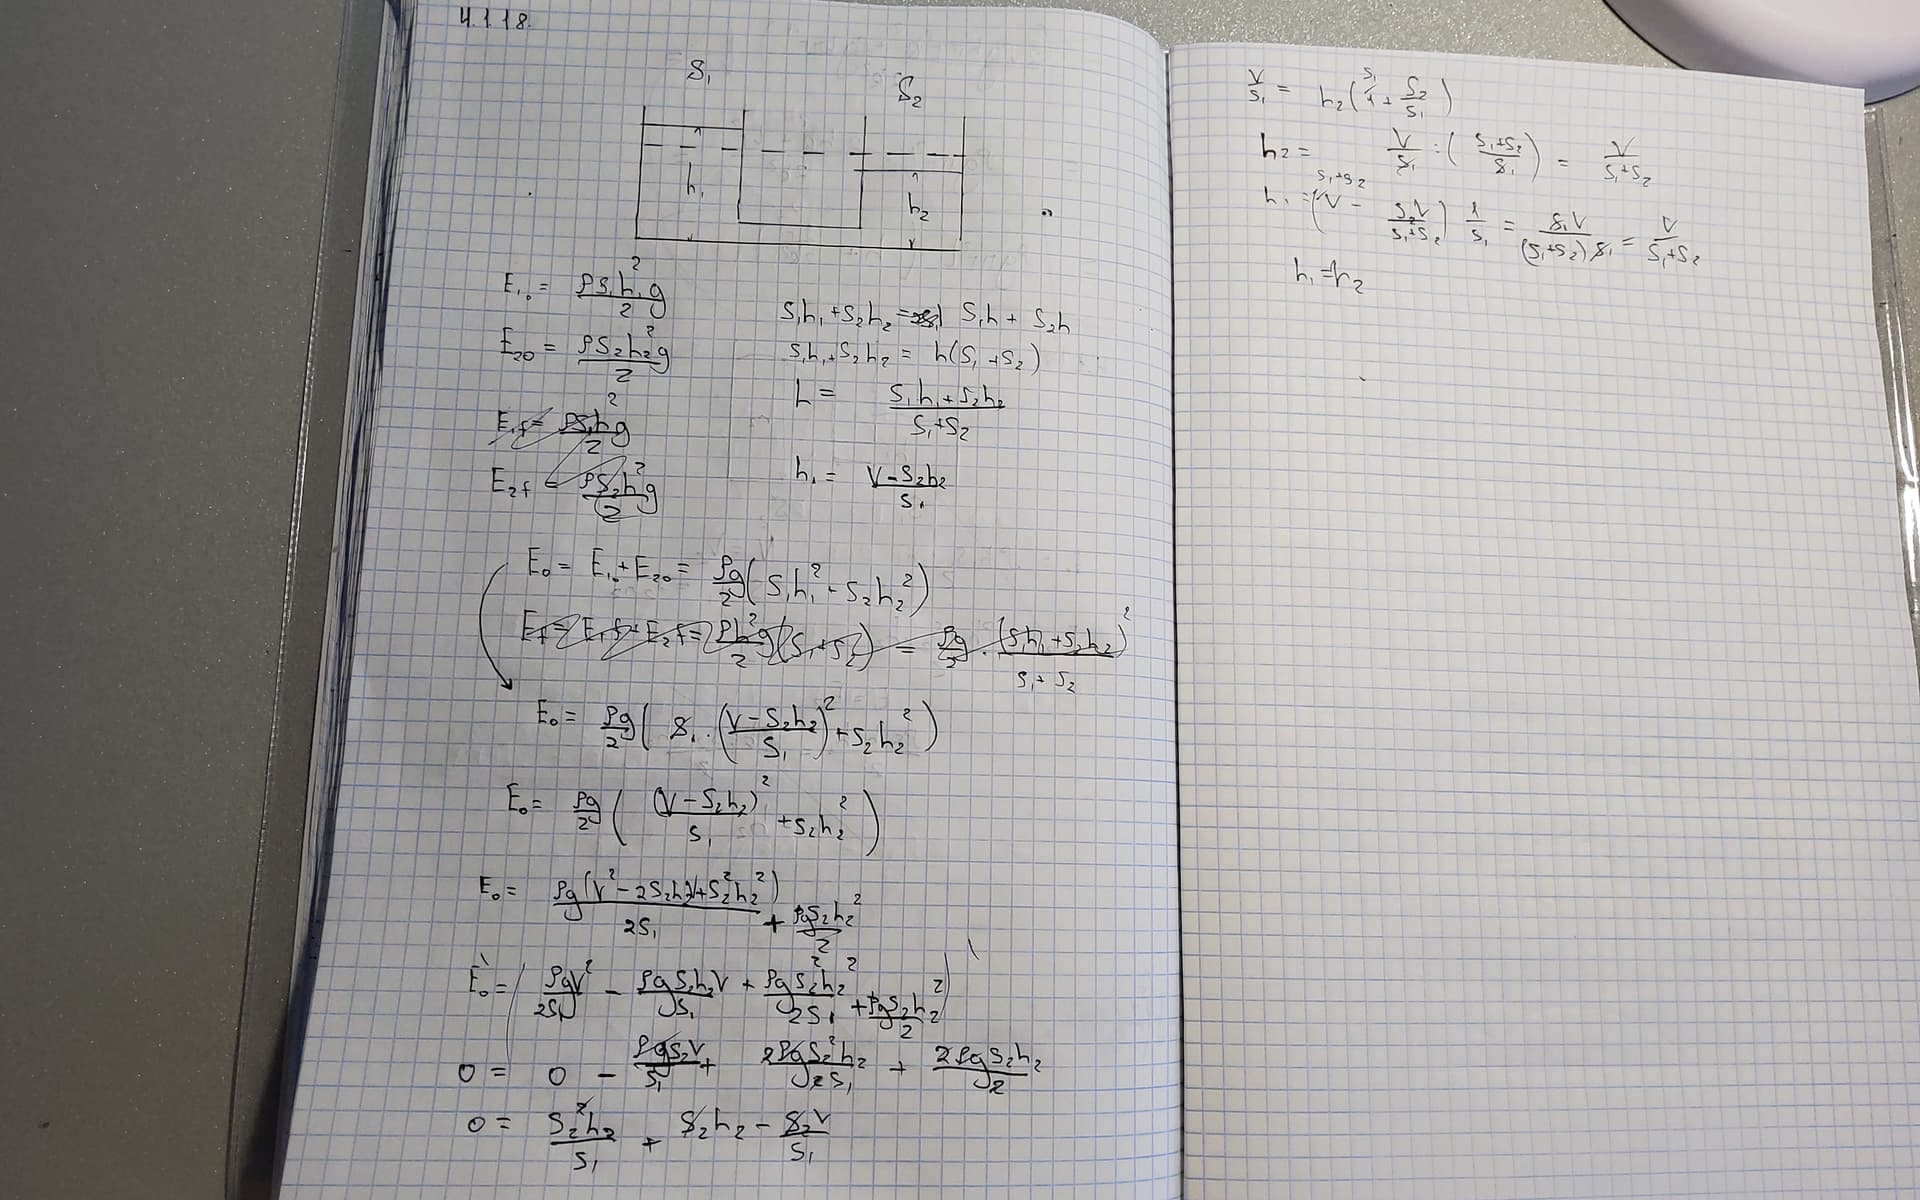 4.1.18.
S₁
S₂
h₁
h₂
E₁₀ = ρS₁h₁²g / 2
E₂₀ = ρS₂h₂²g / 2
E₁f = ρS₁h²g / 2
E₂f = ρS₂h²g / 2
S₁h₁ + S₂h₂ = S₁h + S₂h
S₁h₁ + S₂h₂ = h(S₁ + S₂)
h = (S₁h₁ + S₂h₂) / (S₁ + S₂)
h₁ = (V - S₂h₂) / S₁
E₀ = E₁₀ + E₂₀ = ρg/2 (S₁h₁² + S₂h₂²)
Ef = E₁f + E₂f = ρh²g/2 (S₁ + S₂) = ρg/2 · (S₁h₁ + S₂h₂)² / (S₁ + S₂)
E₀ = ρg/2 (S₁ · ((V - S₂h₂) / S₁)² + S₂h₂²)
E₀ = ρg/2 ((V - S₂h₂)² / S₁ + S₂h₂²)
E₀ = ρg(V² - 2S₂h₂V + S₂²h₂²) / 2S₁ + ρgS₂h₂² / 2
E₀` = (ρgV² / 2S₁ - ρgS₂h₂V / S₁ + ρgS₂²h₂² / 2S₁ + ρgS₂h₂² / 2)`
0 = 0 - ρgS₂V / S₁ + 2ρgS₂²h₂ / 2S₁ + 2ρgS₂h₂ / 2
0 = S₂²h₂ / S₁ + S₂h₂ - S₂V / S₁
V/S₁ = h₂(S₁/1 + S₂/S₁)
h₂ = V/S₁ : ((S₁+S₂)/S₁) = V/(S₁+S₂)
h₁ = (S₁+S₂/V - S₂V/(S₁+S₂)) 1/S₁ = S₁V/((S₁+S₂)S₁) = V/(S₁+S₂)
h₁ = h₂